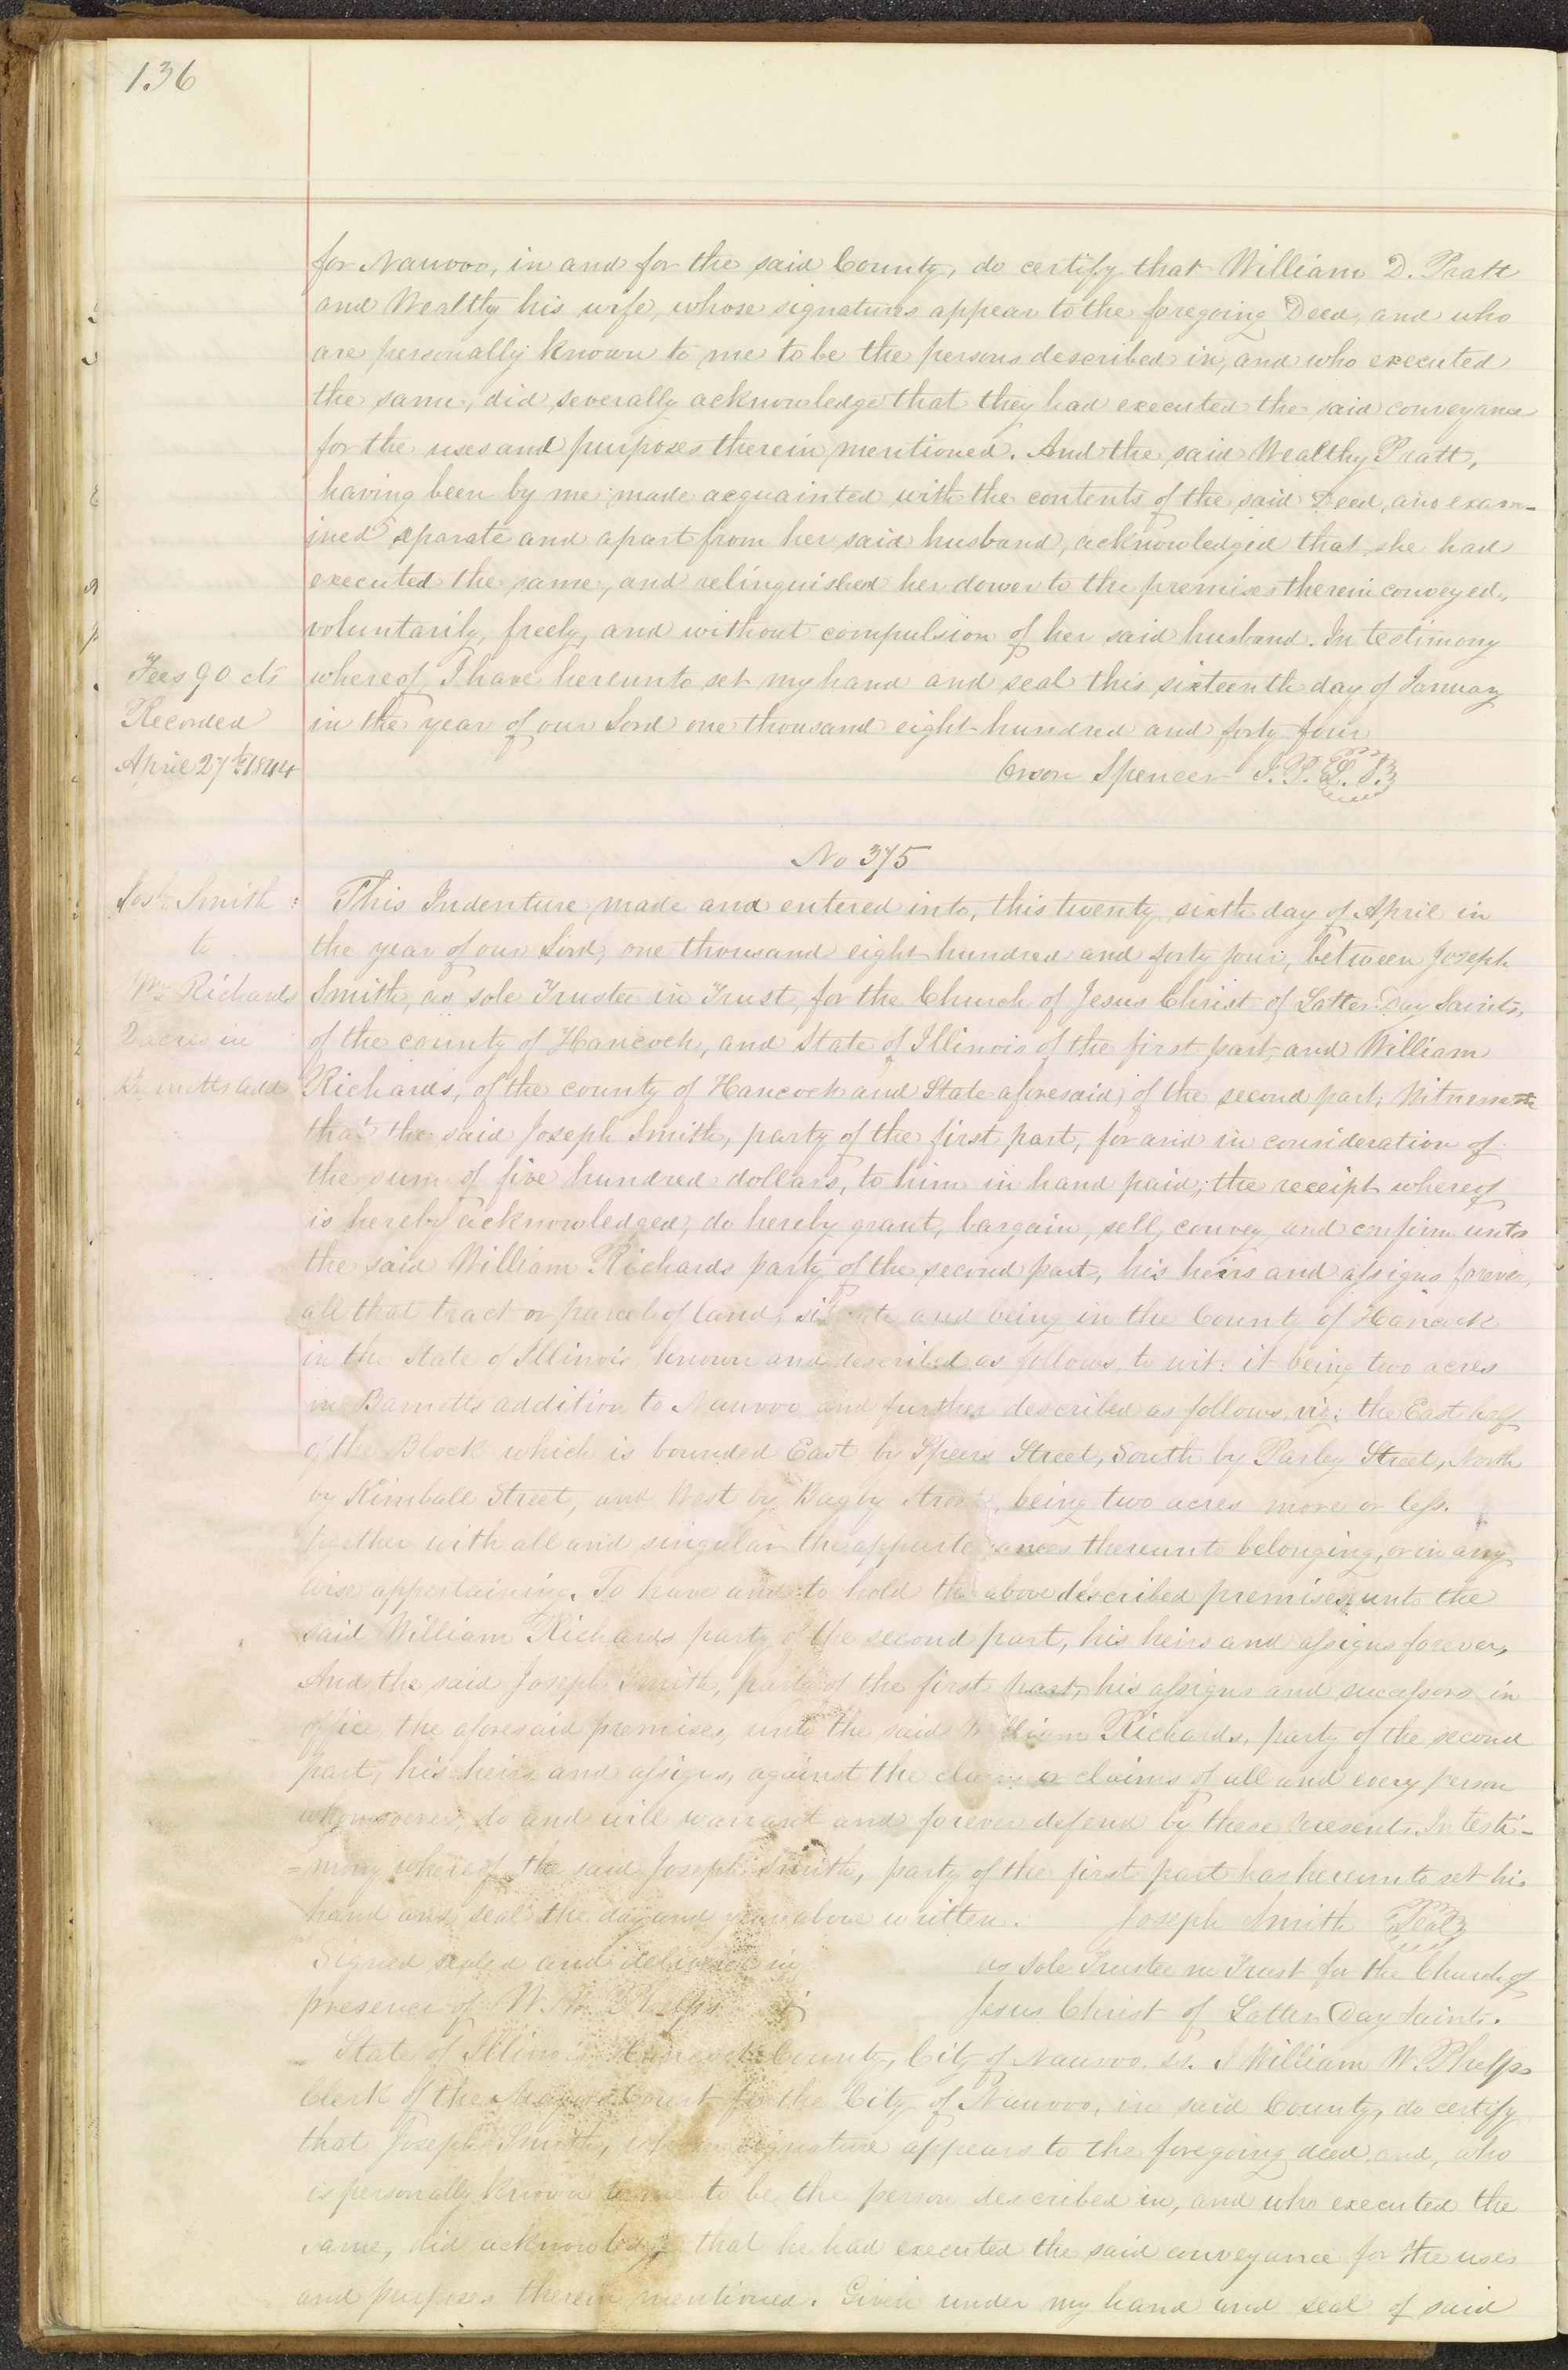 136
for Nauvoo, in and for the said County, do certify that William D. Pratt
and Wealthy his wife, whose signatures appear to the foregoing Deed, and who
are personally known to me to be the persons described in, and who executed
the same, did severally acknowledge that they had executed the said conveyance
for the uses and purposes therein mentioned. And the said Wealthy Pratt,
having been by me made acquainted with the contents of the said Deed, and exam-
ined separate and apart from her said husband, acknowledged that she had
executed the same, and relinquished her dower to the premises therein conveyed,
voluntarily, freely, and without compulsion of her said husband. In testimony
Fees 90 cts
whereof, I have hereunto set my hand and seal this sixteenth day of January
Recorded
in the year of our Lord one thousand eight hundred and forty four
April 27th 1844
Orson Spencer J. P. L. S.
No 375
Josh Smith
This Indenture made and entered into, this twenty sixth day of April in
to
the year of our Lord, one thousand eight hundred and forty four, between Joseph
Wm Richards
Smith, as sole Trustee in Trust, for the Church of Jesus Christ of Latter Day Saints,
2 acres in
of the county of Hancock, and State of Illinois of the first part, and William
Barnetts add
Richards, of the county of Hancock and State aforesaid, of the second part; Witnesseth
that the said Joseph Smith, party of the first part, for and in consideration of
the sum of five hundred dollars, to him in hand paid; the receipt whereof
is hereby acknowledged, do hereby grant, bargain, sell, convey and confirm unto
the said William Richards party of the second part, his heirs and assigns forever,
all that tract or parcel of land, situate and being in the County of Hancock
in the State of Illinois known and described as follows, to wit: it being two acres
in Barnetts addition to Nauvoo and further described as follows, viz: the East half
of the Block which is bounded East by Speers Street, South by Parley Street, North
by Kimball Street, and West by Bagby Street, being two acres more or less.
together with all and singular the appurtenances thereunto belonging, or in any
wise appertaining. To have and to hold the above described premises, unto the
said William Richards party of the second part, his heirs and assigns forever,
And the said Joseph Smith, party of the first part, his assigns and successors in
office the aforesaid premises, unto the said William Richards, party of the second
part, his heirs and assigns, against the claim or claims of all and every person
whomsoever, do and will warrant and forever defend by these presents. In testi-
=mony whereof the said Joseph Smith, party of the first part has hereunto set his
hand and seal the day and year above written. Joseph Smith Seal
Signed sealed and delivered in as sole Trustee in Trust for the Church of
presence of W. W. Phelps Jesus Christ of Latter Day Saints.
State of Illinois Hancock County, City of Nauvoo. ss. I William W. Phelps
Clerk of the Mayors Court for the City of Nauvoo, in said County, do certify
that Joseph Smith, whose signature appears to the foregoing deed, and, who
is personally known to me to be the person described in, and who executed the
same, did acknowledge that he had executed the said conveyance for the uses
and purposes therein mentioned. Given under my hand and seal of said